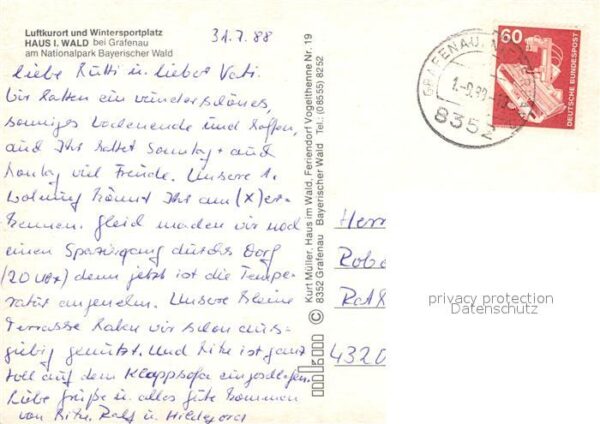 Luftkurort und Wintersportplatz
HAUS I. WALD bei Grafenau
am Nationalpark Bayerischer Wald
31.7.88
Liebe Mutti u. lieber Vati.
Wir hatten ein wunderschönes,
sonniges Wochenende und hoffen,
auch Ihr hattet Sonntag + auch
Montag viel Freude. Unsere
Wohnung könnt Ihr am (X) er-
kennen. Gleich machen wir noch
einen Spaziergang durchs Dorf
(20 Uhr) denn jetzt ist die Tempe-
ratur angenehm. Unsere kleine
Terrasse haben wir schon aus-
giebig genutzt. Und Rike ist ganz
toll auf dem Klappsofa eingeschlafen.
Liebe Grüße u. alles gute kommen
von Rike, Ralf u. Hildegard
Kurt Müller, Haus im Wald, Feriendorf Vogelthenne Nr. 19
8352 Grafenau Bayerischer Wald Tel.: (08555) 8252
60
DEUTSCHE BUNDESPOST
GRAFENAU
8352
Herrn
Robe
4320
privacy protection
Datenschutz